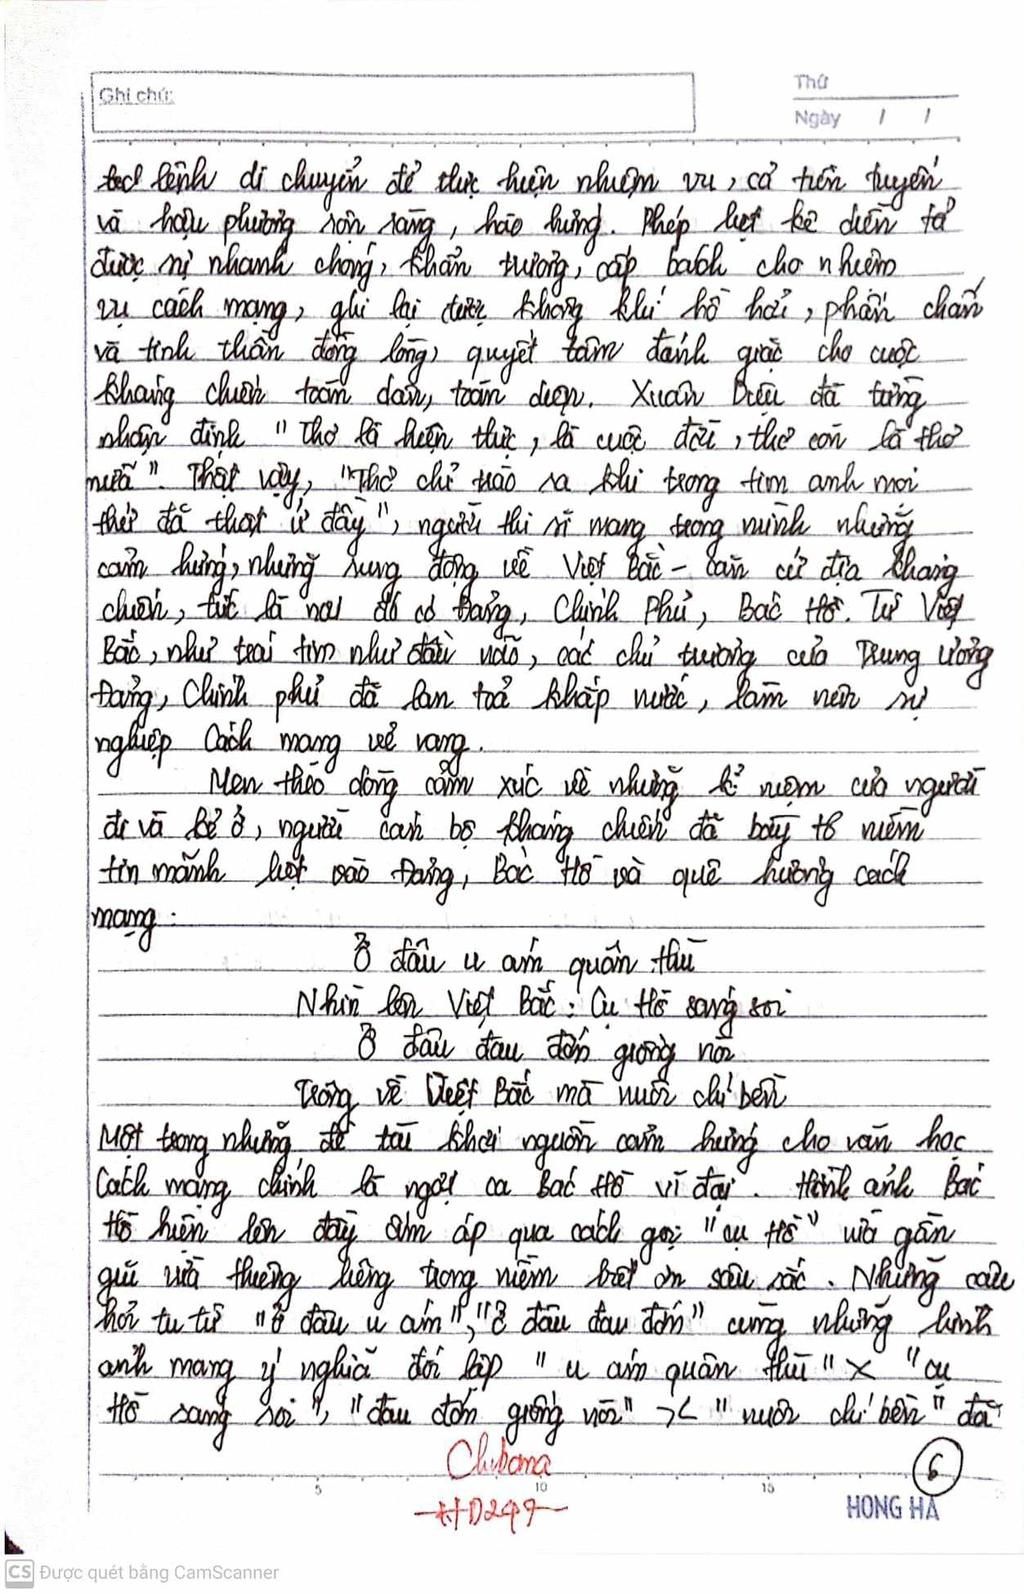 Ghi chú:
Thứ
Ngày / /
lệnh di chuyển để thực hiện nhiệm vụ, cả tiền tuyến
và hậu phương sẵn sàng, hào hứng. Phép liệt kê diễn tả
được sự nhanh chóng, khẩn trương, cấp bách cho nhiệm
vụ cách mạng, ghi lại được không khí hồ hởi, phấn chấn
và tinh thần đồng lòng, quyết tâm đánh giặc cho cuộc
kháng chiến toàn dân, toàn diện. Xuân Diệu đã từng
nhận định "Thơ là hiện thực, là cuộc đời, thơ còn là thơ
nữa". Thật vậy, "Thơ chỉ trào ra khi trong tim anh mọi
thứ đã thật ứ đầy", người thi sĩ mang trong mình những
cảm hứng, những rung động về Việt Bắc - căn cứ địa kháng
chiến, tức là nơi đó có Đảng, Chính Phủ, Bác Hồ. Từ Việt
Bắc, như trái tim như đầu não, các chủ trương của Trung ương
Đảng, Chính phủ đã lan toả khắp nước, làm nên sự
nghiệp Cách mạng vẻ vang.
Men theo dòng cảm xúc về những kỉ niệm của người
đi và kẻ ở, người cán bộ kháng chiến đã bày tỏ niềm
tin mãnh liệt vào Đảng, Bác Hồ và quê hương cách
mạng:
Ở đâu u ám quân thù
Nhìn lên Việt Bắc: Cụ Hồ sáng soi
Ở đâu đau đớn giống nòi
Trông về Việt Bắc mà nuôi chí bền
Một trong những đề tài khơi nguồn cảm hứng cho văn học
Cách mạng chính là ngợi ca Bác Hồ vĩ đại. Hình ảnh Bác
Hồ hiện lên đầy ấm áp qua cách gọi "cụ Hồ" vừa gần
gũi vừa thiêng liêng trong niềm biết ơn sâu sắc. Những câu
hỏi tu từ "ở đâu u ám", "ở đâu đau đớn" cùng những hình
ảnh mang ý nghĩa đối lập "u ám quân thù" X "cụ
Hồ sáng soi", "đau đớn giống nòi" >< "nuôi chí bền" đã
6
5 10 15
HD249
HONG HA
CS Được quét bằng CamScanner